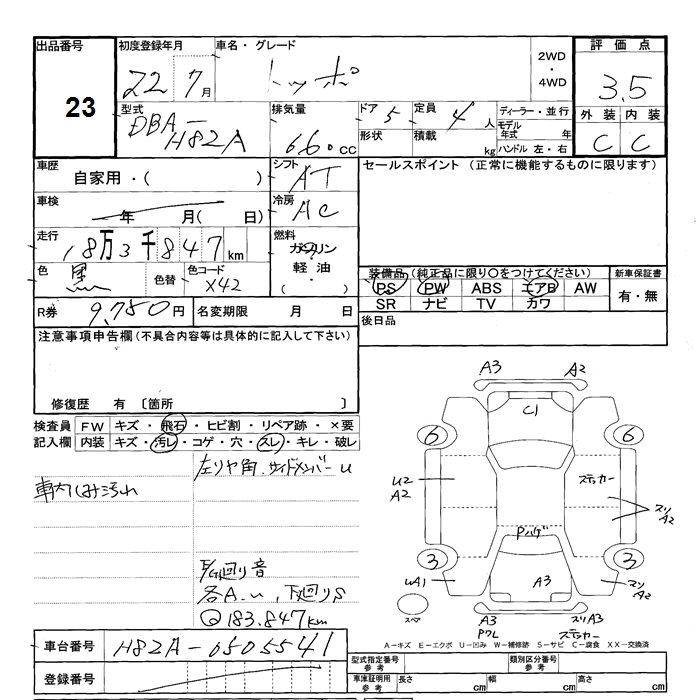 出品番号 23
初度登録年月 22 7月
車名・グレード トッポ
2WD・4WD
評価点 3.5
外装 C 内装 C
型式 DBA-H82A
排気量 660cc
ドア 5 定員 4人
形状 積載 kg
ディーラー・並行
モデル年式 年
ハンドル 左・右
車歴 自家用・( )
シフト AT
セールスポイント (正常に機能するものに限ります)
車検 年 月( 日)
冷房 AC
走行 18万3千847km
燃料 ガソリン 軽油・( )
色 黒 色替 色コード X42
装備品(純正品に限り○をつけてください) 新車保証書
PS PW ABS エアB AW 有・無
SR ナビ TV カワ
R券 9,780円 名変期限 月 日
後日品
注意事項申告欄(不具合内容等は具体的に記入して下さい)
修復歴 有 〔箇所 〕
検査員 FW キズ・飛石・ヒビ割・リペア跡・×要
記入欄 内装 キズ・汚レ・コゲ・穴・スレ・キレ・破レ
左リヤ角.サイドメンバーu
車内しみ汚れ
E/G廻り音
各A.u,下廻りS
183.847km
A3 A2
C1
6 6
U2 A2 ステッカー
スリ A2
Pハゲ
3 3
UA1 A3 スリ A2
スペア A3 スリA3
PクレA ステッカー
A-キズ E-エクボ U-凹み W-補修跡 S-サビ C-腐食 XX-交換済
車台番号 H82A-6505541
型式指定番号 参考 類別区分番号 参考
登録番号
車庫証明用 参考 長さ cm 幅 cm 高さ cm